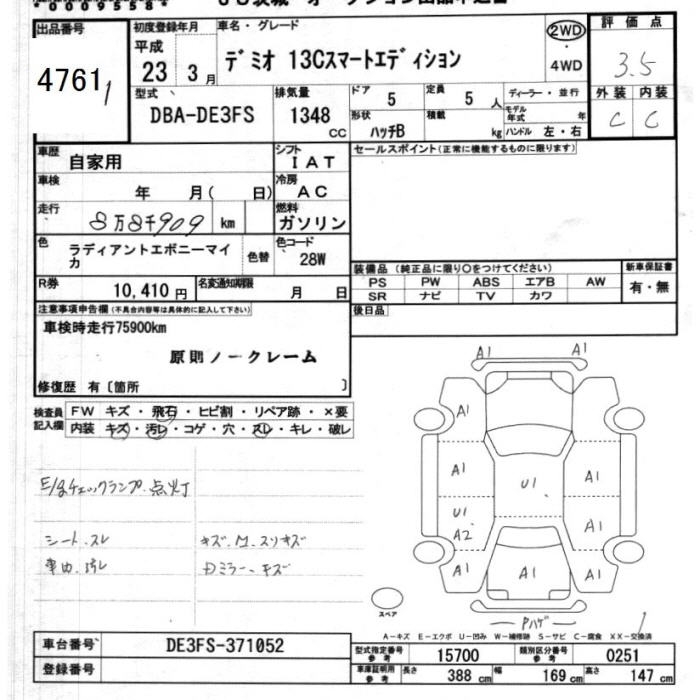 *00005558*
出品番号
4761
初度登録年月
平成
23 3月
車名・グレード
デミオ 13Cスマートエディション
2WD
・
4WD
評価点
3.5
外装 内装
C C
型式
DBA-DE3FS
排気量
1348
CC
ドア
5
定員
5 人
ディーラー・並行
形状
ハッチB
積載
kg
モデル年式 年
ハンドル 左・右
車歴
自家用
シフト
IAT
セールスポイント(正常に機能するものに限ります)
車検
年 月( 日)
冷房
AC
走行
8万8千909 km
燃料
ガソリン
色
ラディアントエボニーマイカ
色替
色コード
28W
装備品(純正品に限り○をつけてください)
新車保証書
PS PW ABS エアB AW
有・無
SR ナビ TV カワ
R券
10,410円
名変通知期限
月 日
後日品
注意事項申告欄(不具合内容は具体的に記入して下さい)
車検時走行75900km
原則ノークレーム
修復歴 有〔箇所 〕
検査員記入欄
FW キズ・飛石・ヒビ割・リペア跡・×要
内装 キズ・汚レ・コゲ・穴・スレ・キレ・破レ
E/gチェックランプ.点灯
シート.スレ
キズ.凹.スリキズ
車内.汚レ
Dミラー.キズ
A1 A1
A1
A1 U1 A1
U1
A2 A1
A1 A1 A1
スペア
Pハゲ
A−キズ E−エクボ U−凹み W−補修跡 S−サビ C−腐食 XX−交換済
車台番号
DE3FS-371052
登録番号
型式指定番号
参考
15700
類別区分番号
参考
0251
車庫証明用
参考
長さ 388 cm
幅 169 cm
高さ 147 cm